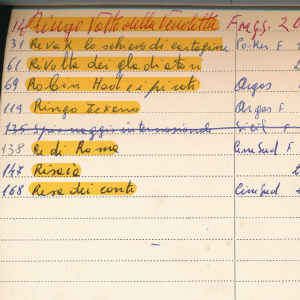 14 Ringo Volto della Vendetta F.M.G.S. 20
31 Revak lo schiavo di cartagine Po-ker F
61 Rivolta dei gladiatori
69 Robin Hood e i pirati Argos
119 Ringo Texano Argos F
135 Spionaggio internazionale Sicil F
138 Re di Roma CineSud F
147 Risaia
168 Resa dei conti CineSud